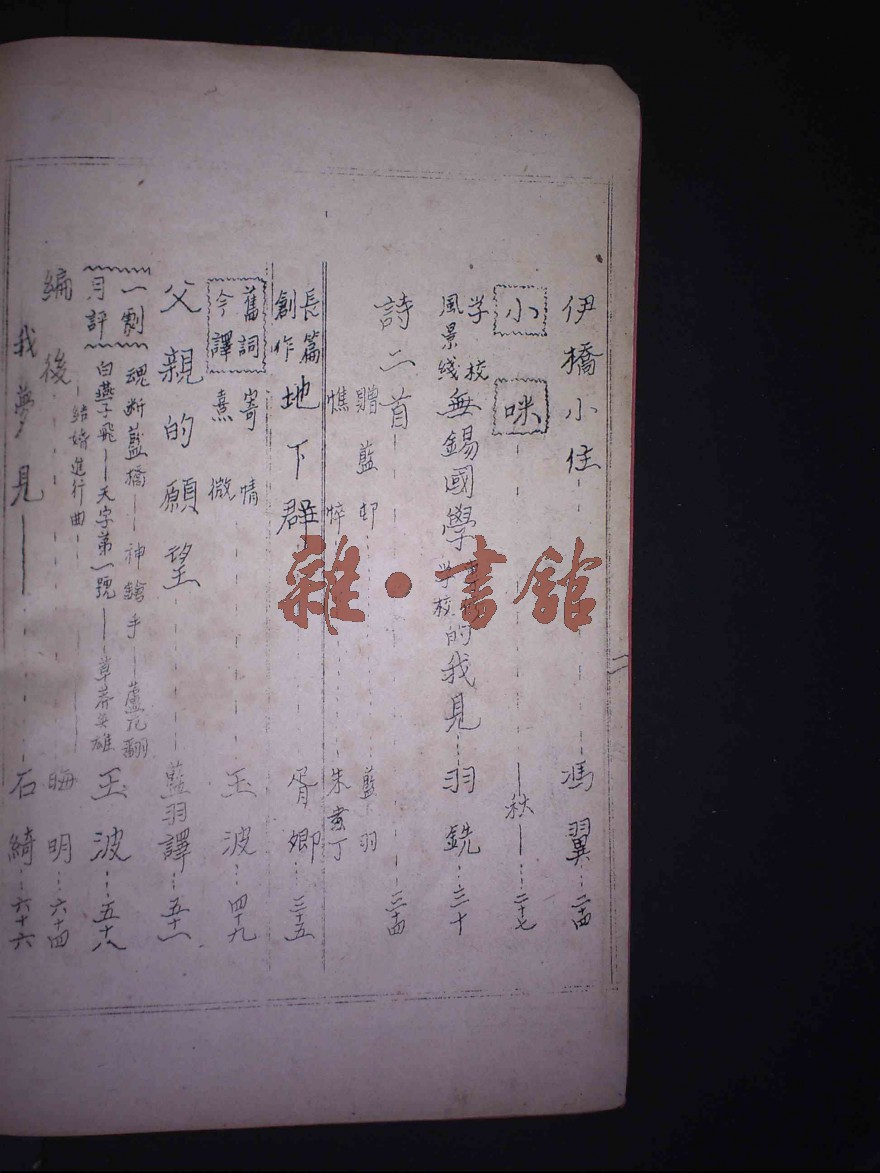 伊橋小住 馮翼 二十四
小咪 秋 二十七
学校風景线 無錫國學 学校的我見 羽銑 三十
詩二首 三十四
贈藍邨 藍羽
憔悴 朱 丁
長篇創作 地下群 胥卿 三十五
舊詞今譯 寄情熹微 王波 四十九
父親的願望 藍羽譯 五十一
一月劇評 魂断藍橋——神鎗手——蘆花翻白燕子飛——天字第一號——草莽英雄——結婚進行曲 王波 五十八
編後 晦明 六十四
我夢見—— 石綺 六十六
二
雜·書館